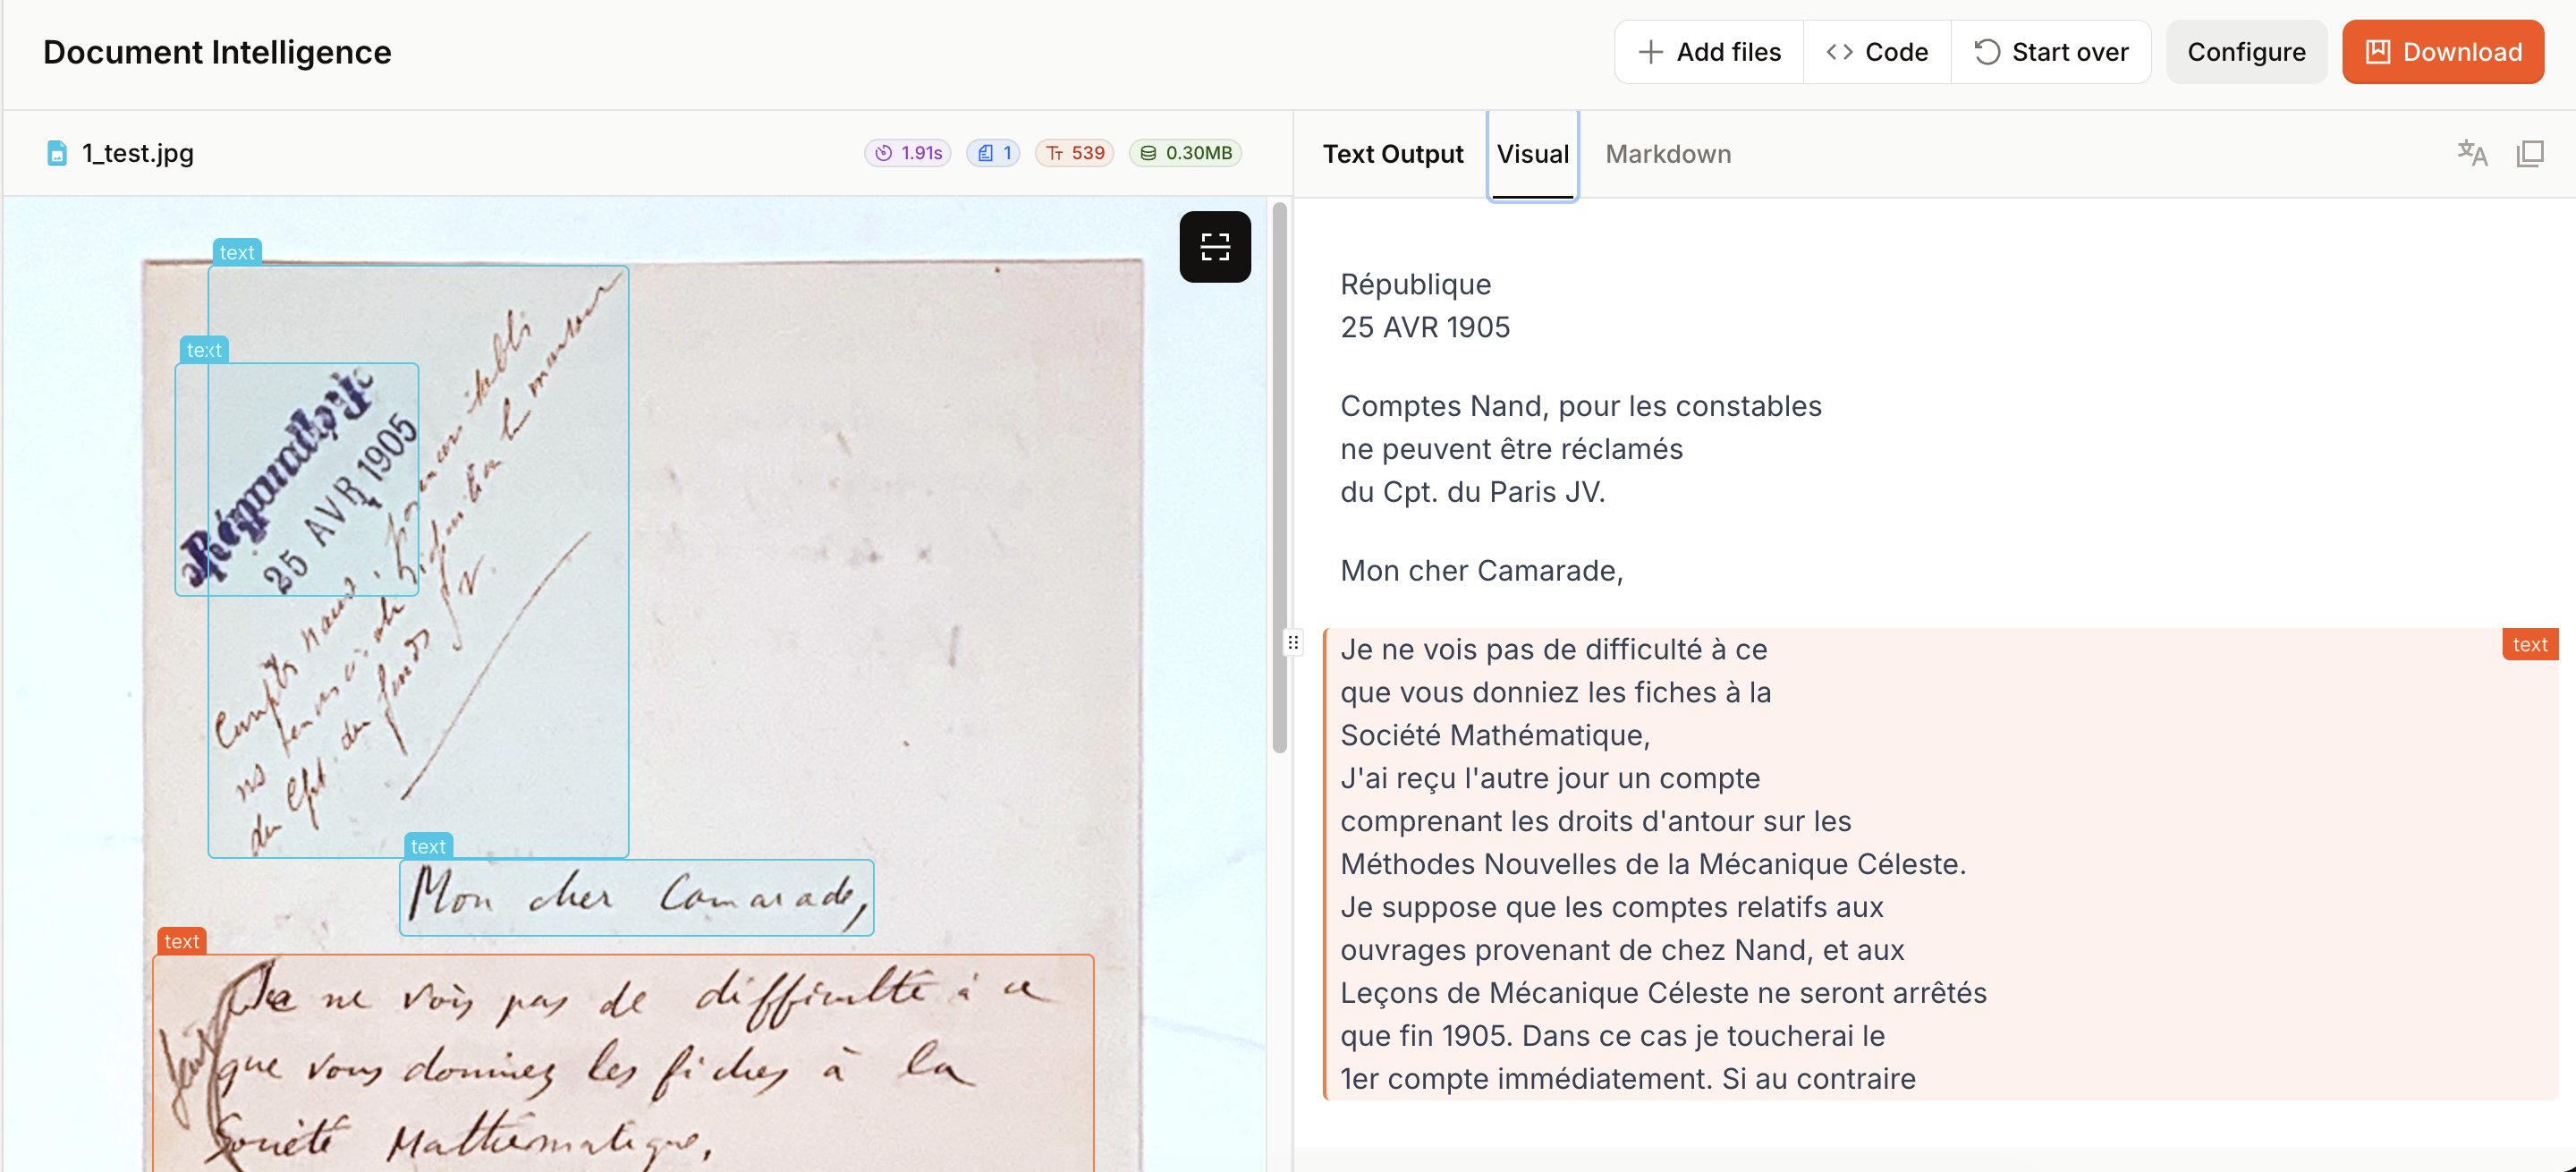 Document Intelligence
Add files
Code
Start over
Configure
Download
1_test.jpg
1.91s
1
539
0.30MB
Text Output
Visual
Markdown
text
text
25 AVR 1905
Compte Naud
du Cpt. du fonds JV.
text
Mon cher Camarade,
text
Je ne vois pas de difficulté à ce
que vous donniez les fiches à la
Société Mathématique,
République
25 AVR 1905
Comptes Nand, pour les constables
ne peuvent être réclamés
du Cpt. du Paris JV.
Mon cher Camarade,
text
Je ne vois pas de difficulté à ce
que vous donniez les fiches à la
Société Mathématique,
J'ai reçu l'autre jour un compte
comprenant les droits d'antour sur les
Méthodes Nouvelles de la Mécanique Céleste.
Je suppose que les comptes relatifs aux
ouvrages provenant de chez Nand, et aux
Leçons de Mécanique Céleste ne seront arrêtés
que fin 1905. Dans ce cas je toucherai le
1er compte immédiatement. Si au contraire